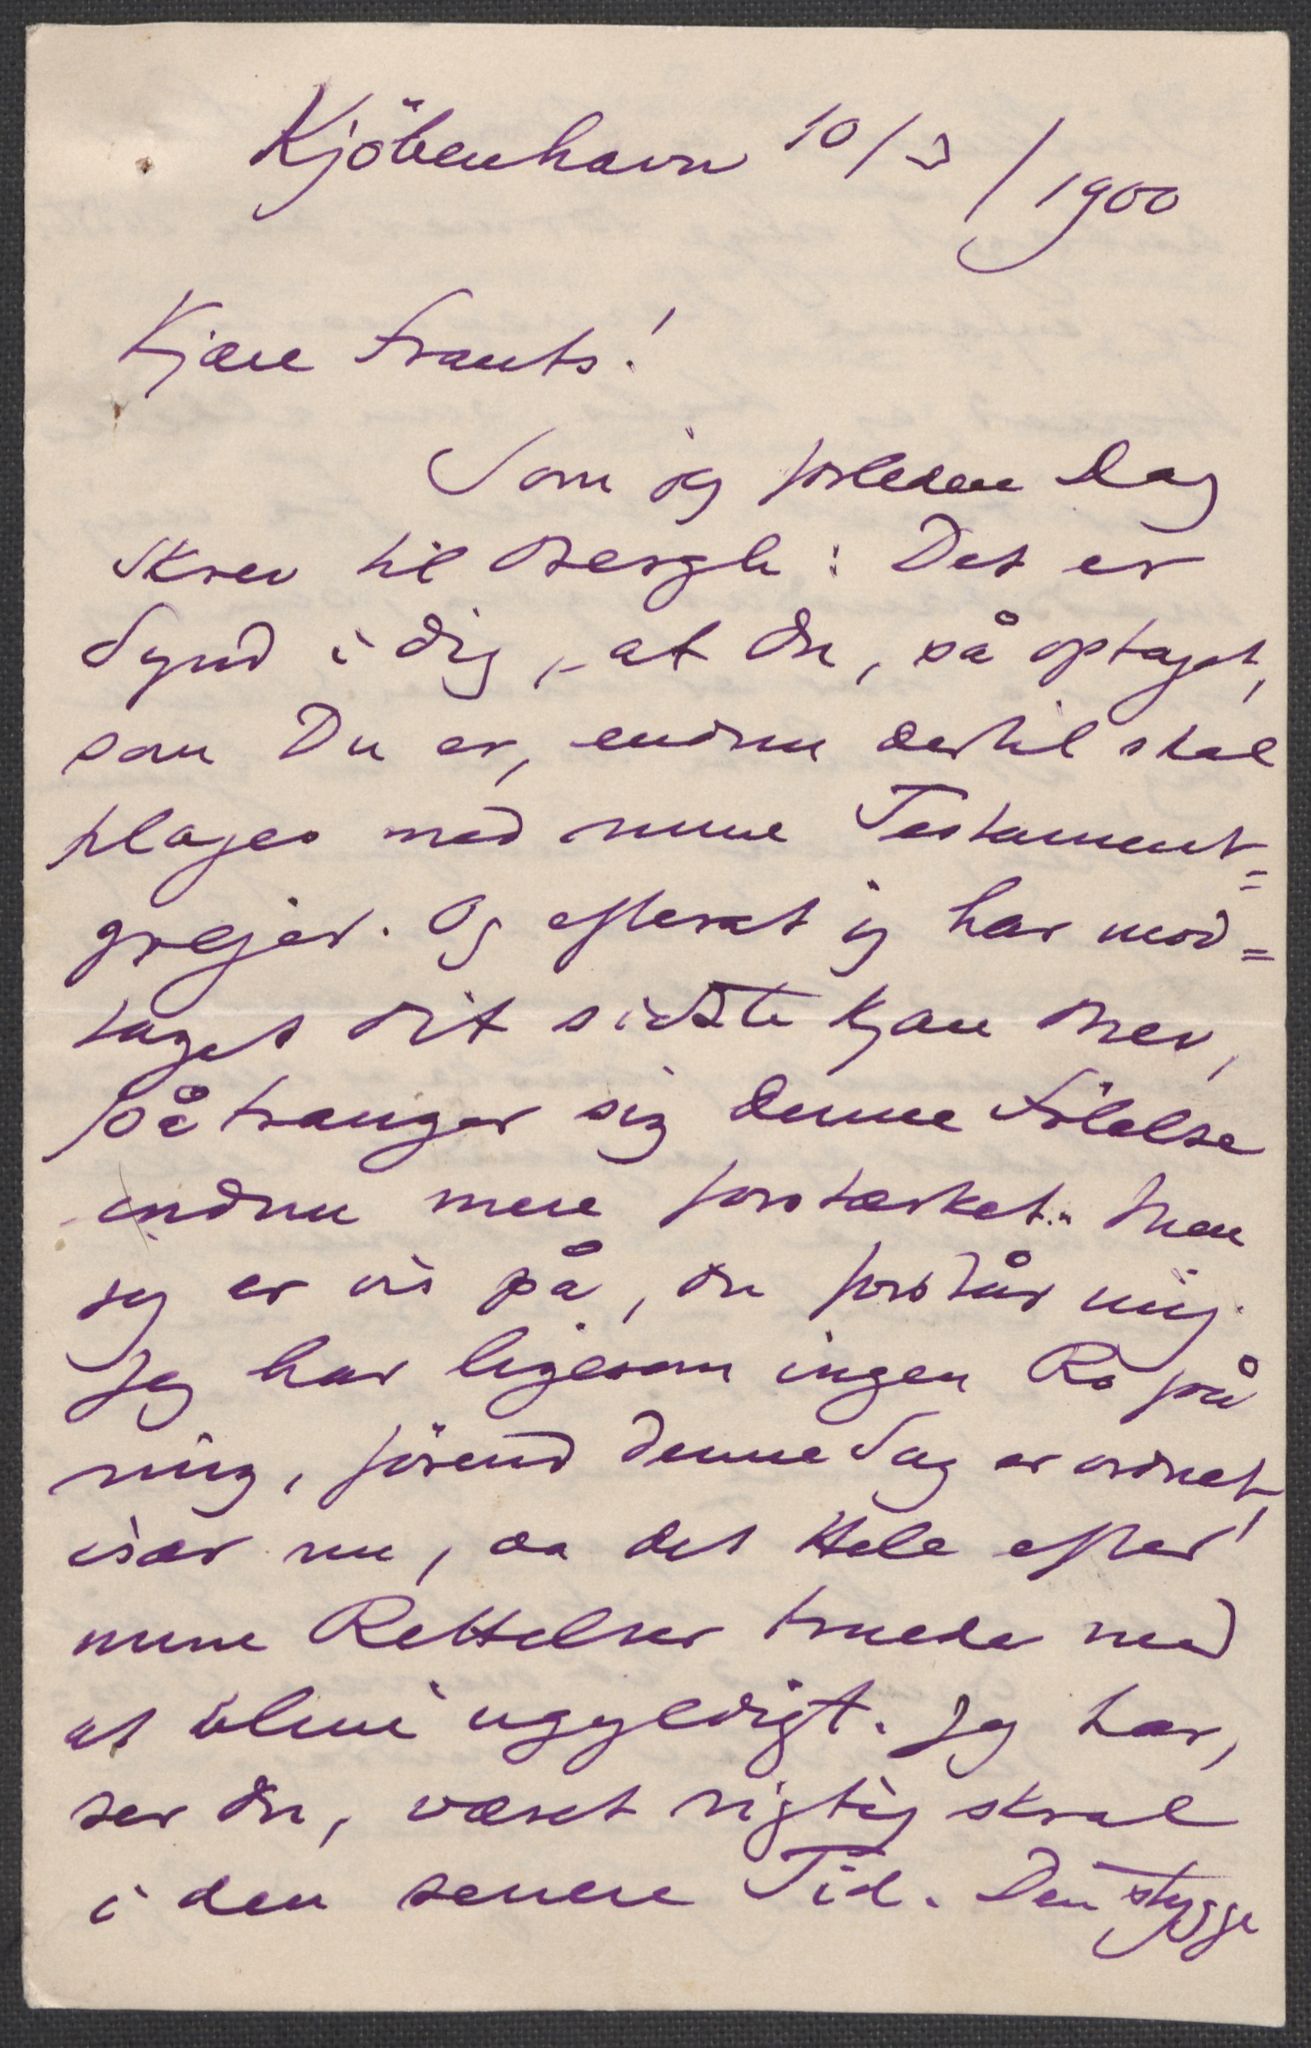 Kjöbenhavn 10/3/1900
Kjære Frants!
Som jeg forleden Dag
skrev til Bergh: Det er
Synd i dig, at du, så optaget,
som Du er, endnu dertil skal
plages med mine Testament=
grejer. Og efterat jeg har mod=
taget dit sidste kjære Brev,
påtrænger sig denne Følelse
endnu mere forstærket. Men
jeg er vis på, du forstår mig.
Jeg har ligesom ingen Ro på
mig, førend denne Sag er ordnet,
især nu, da det Hele efter
mine Rettelser truede med
at blive ugyldigt. Jeg har,
ser du, været rigtig skral
i den senere Tid. Den stygge